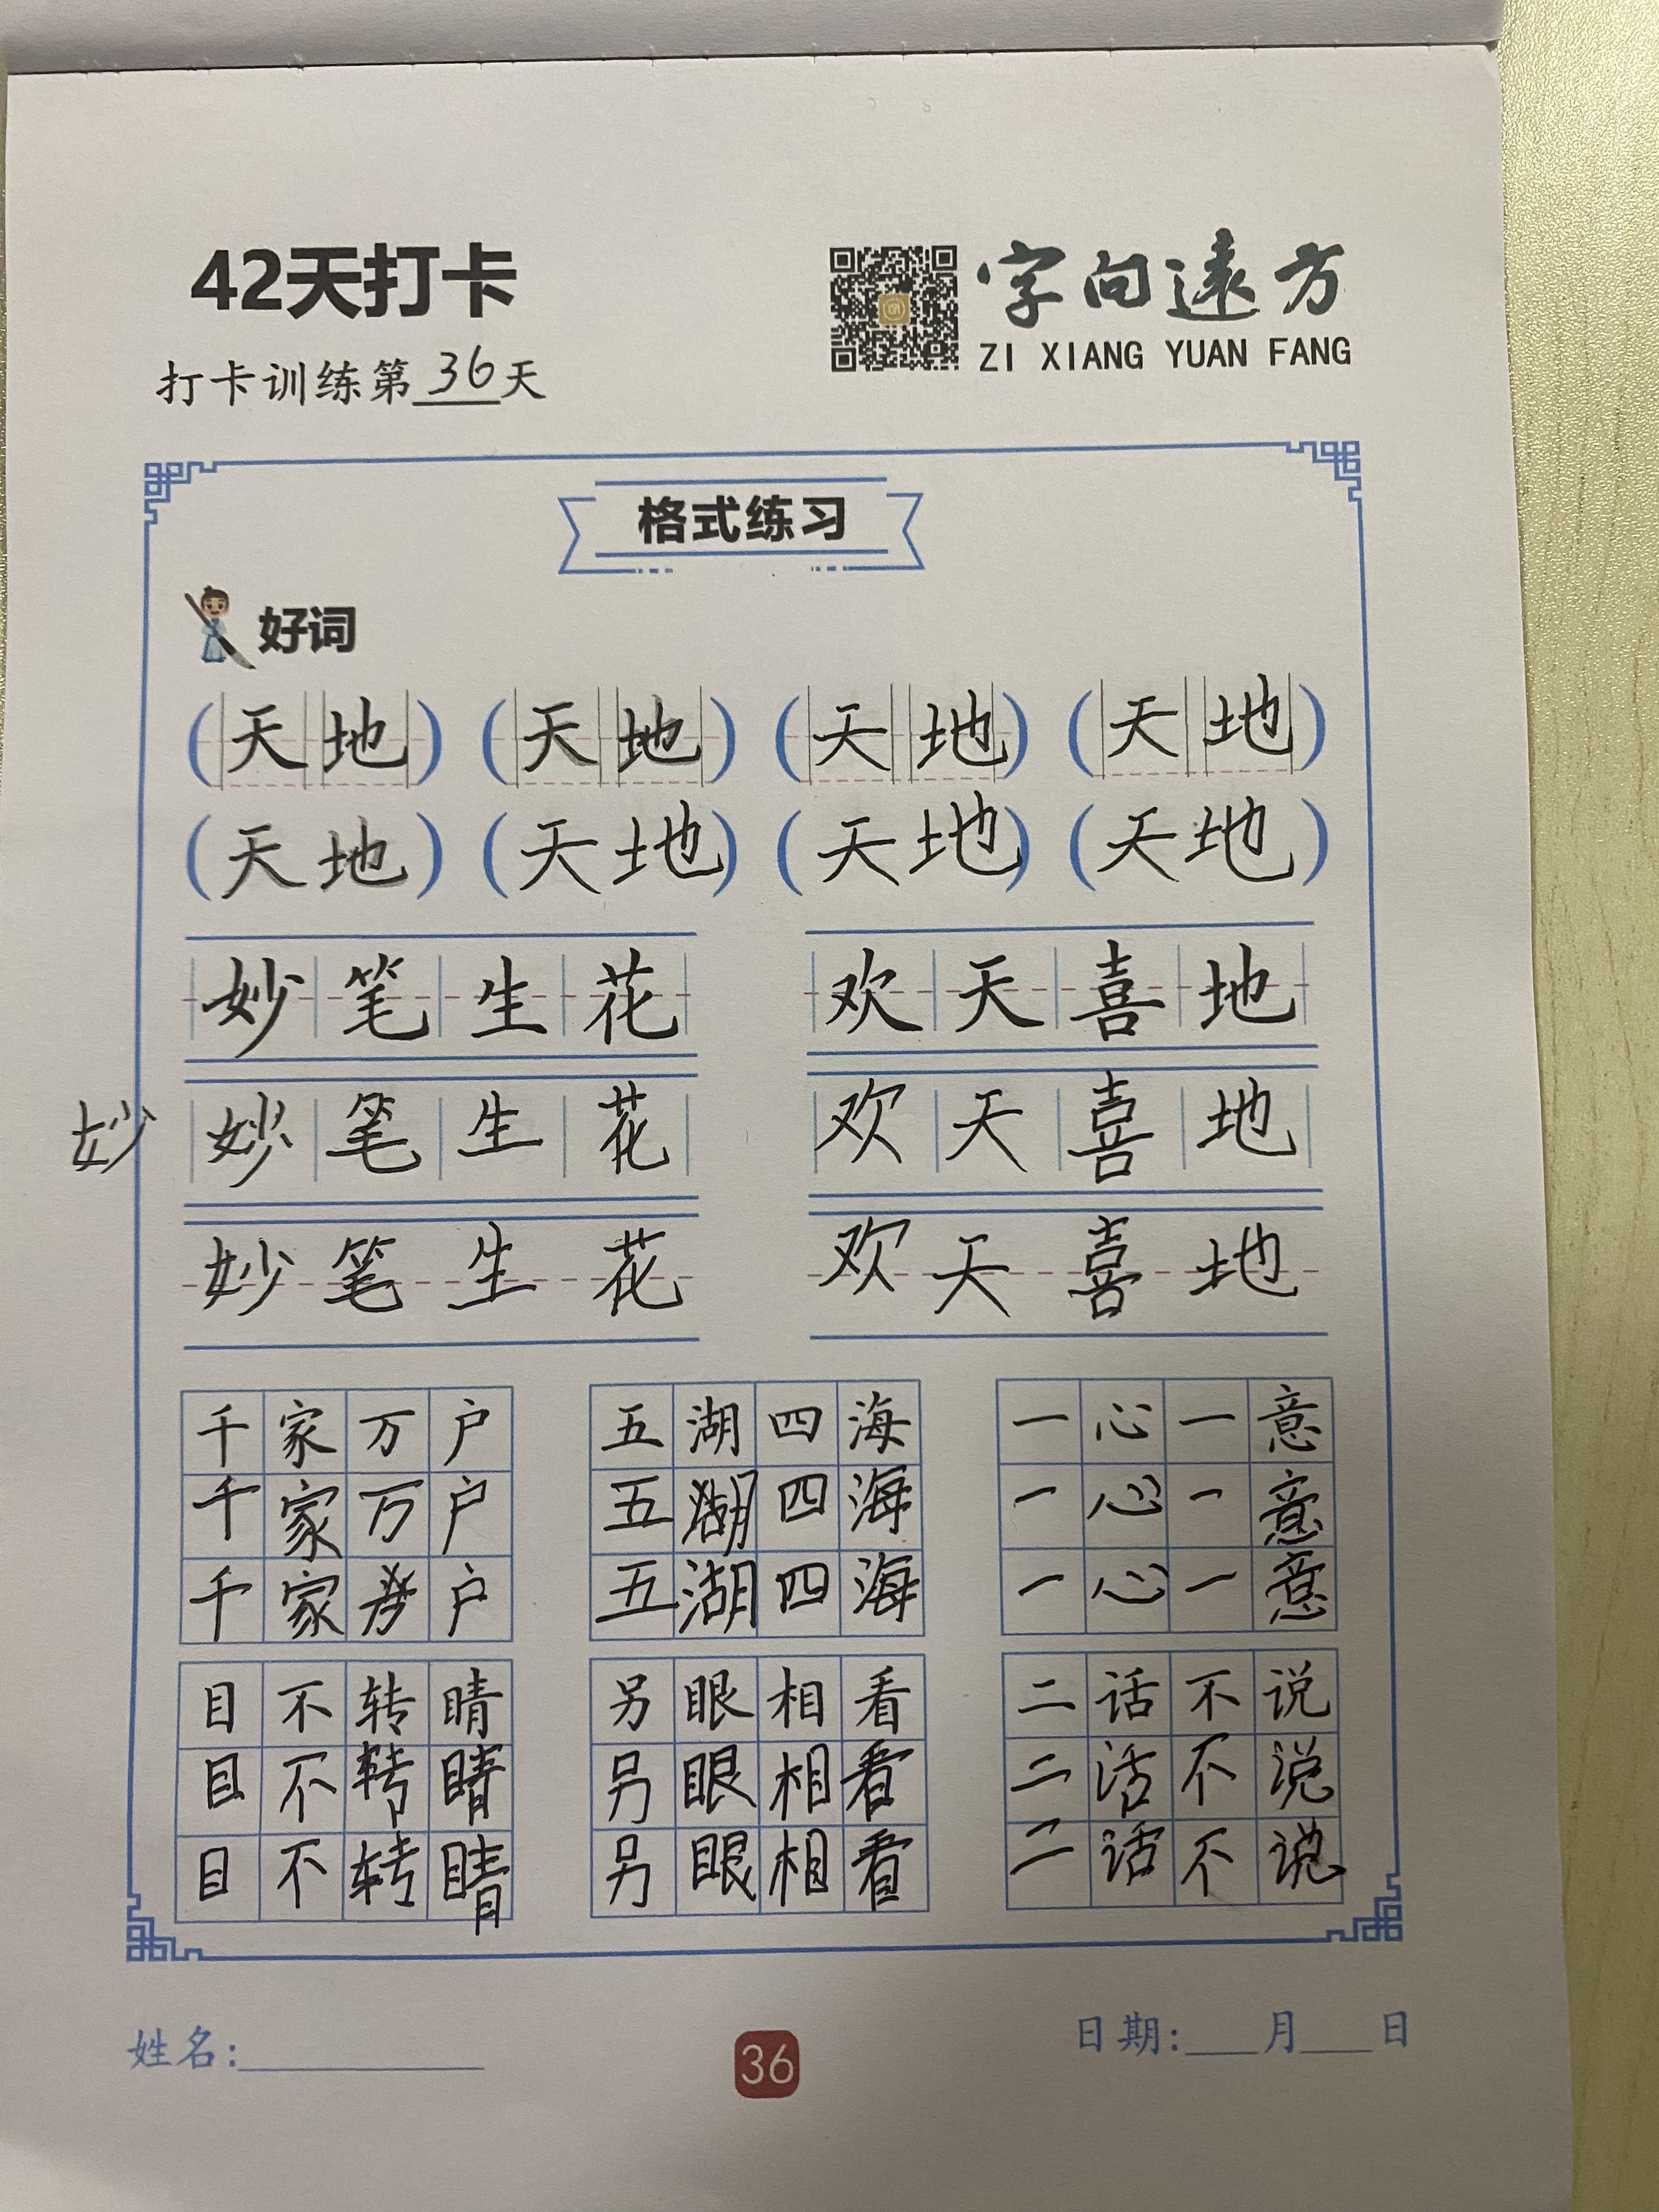 42天打卡
字向远方
ZI XIANG YUAN FANG
打卡训练第36天
格式练习
好词
(天地) (天地) (天地) (天地)
(天地) (天地) (天地) (天地)
妙笔生花 欢天喜地
妙 妙笔生花 欢天喜地
妙笔生花 欢天喜地
千家万户 五湖四海 一心一意
千家万户 五湖四海 一心一意
千家 户 五湖四海 一心一意
目不转睛 另眼相看 二话不说
目不转睛 另眼相看 二话不说
目不转睛 另眼相看 二话不说
姓名: 36 日期: 月 日